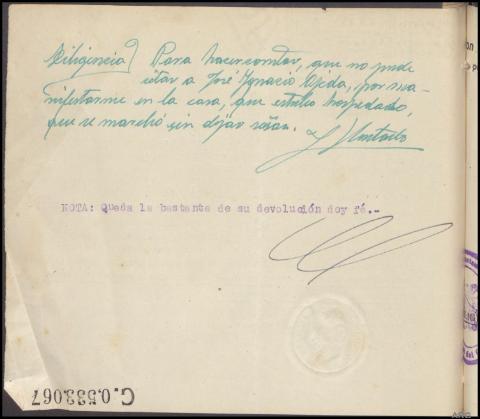 Diligencia] Para hacer constar, que no pude
citar a José Ignacio Ojeda, por ma-
nifestarme en la casa, que estubo hospedado,
que se marchó sin dejar señas.
NOTA: Queda la bastante de su devolución doy fé.-
C.0.533.067